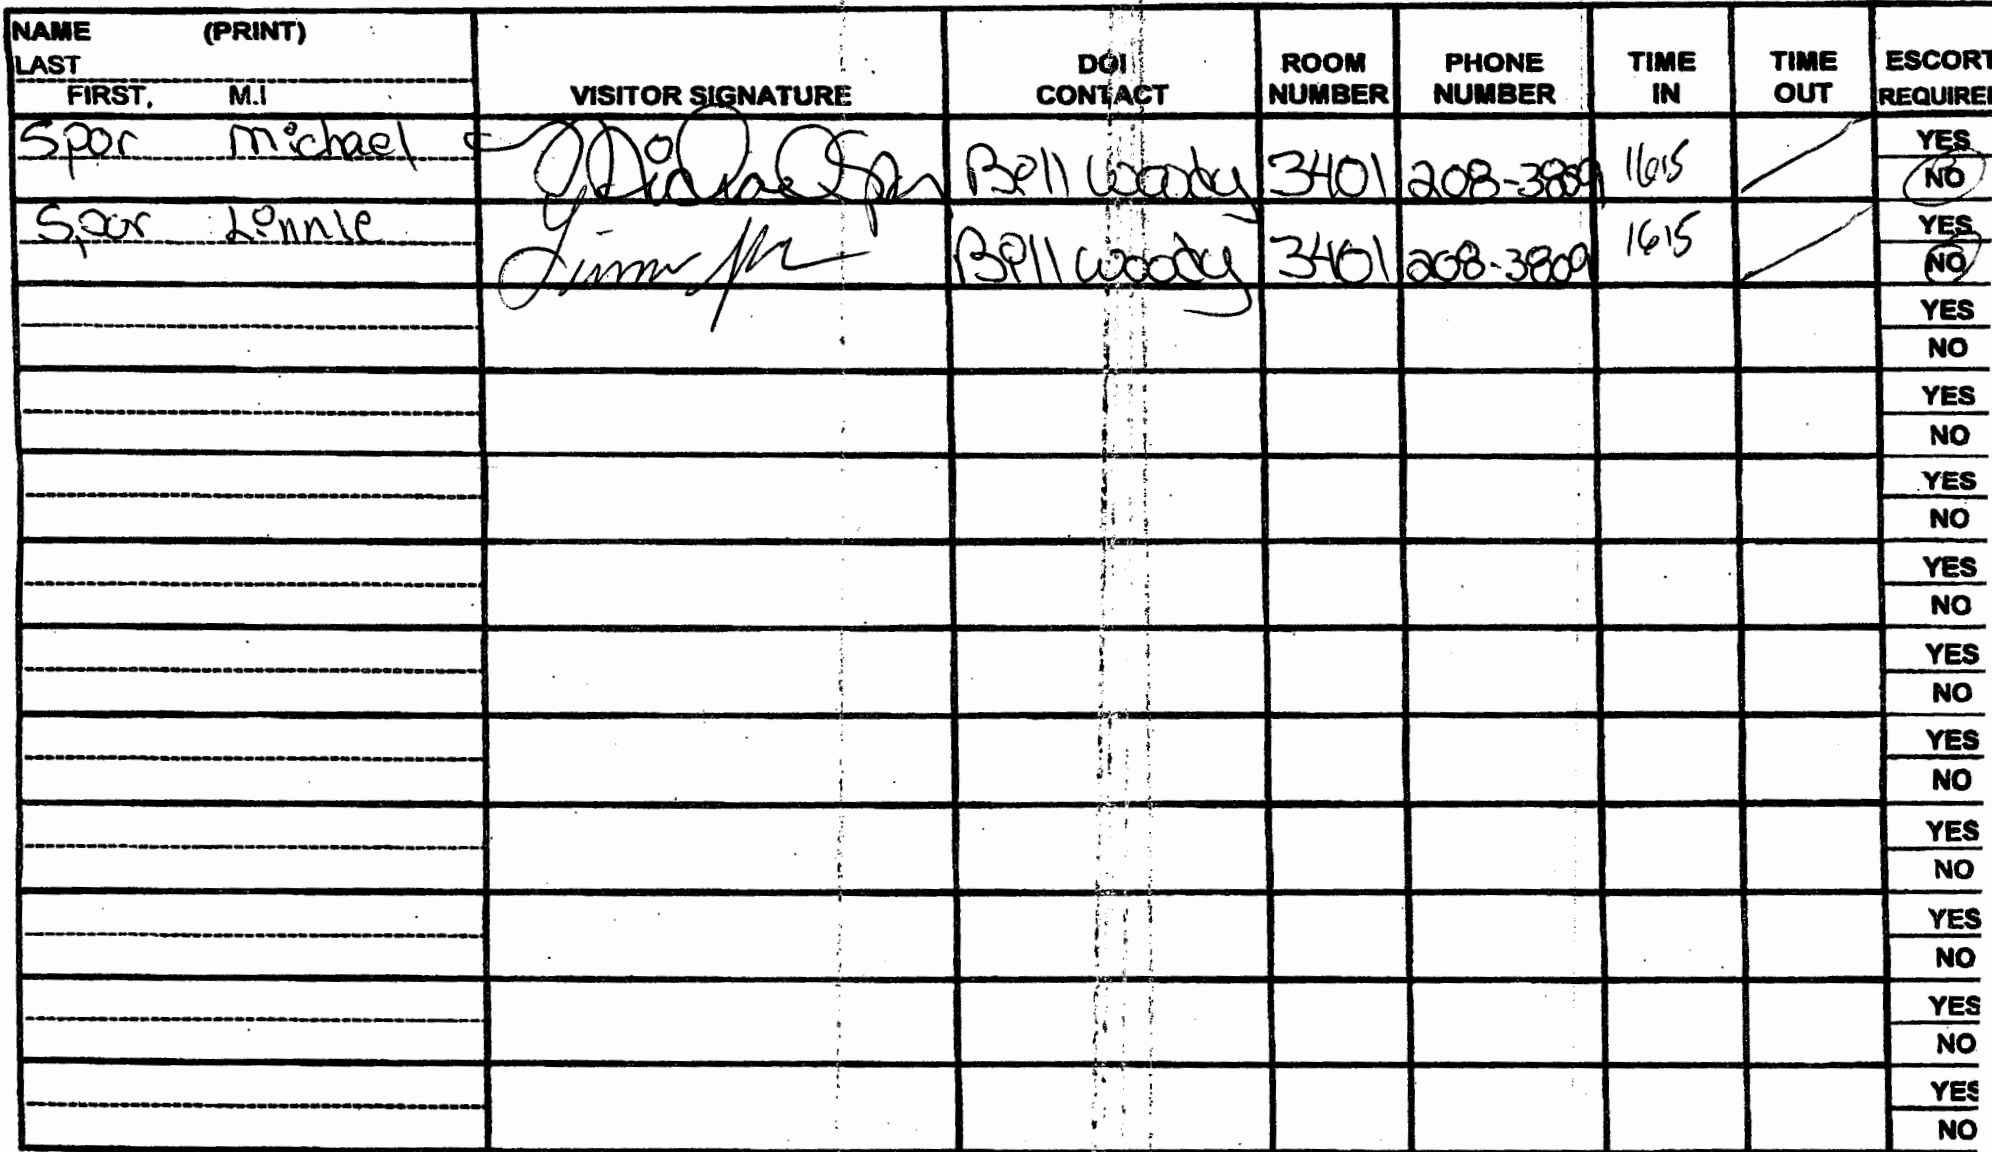 NAME (PRINT)
LAST
FIRST, M.I
VISITOR SIGNATURE
DOI
CONTACT
ROOM
NUMBER
PHONE
NUMBER
TIME
IN
TIME
OUT
ESCORT
REQUIRE
Spor Michael
Bell Woody 3401 208-3809 1615
YES
NO
Spor Linnie
Bell Woody 3401 208-3809 1615
YES
NO
YES
NO
YES
NO
YES
NO
YES
NO
YES
NO
YES
NO
YES
NO
YES
NO
YES
NO
YES
NO